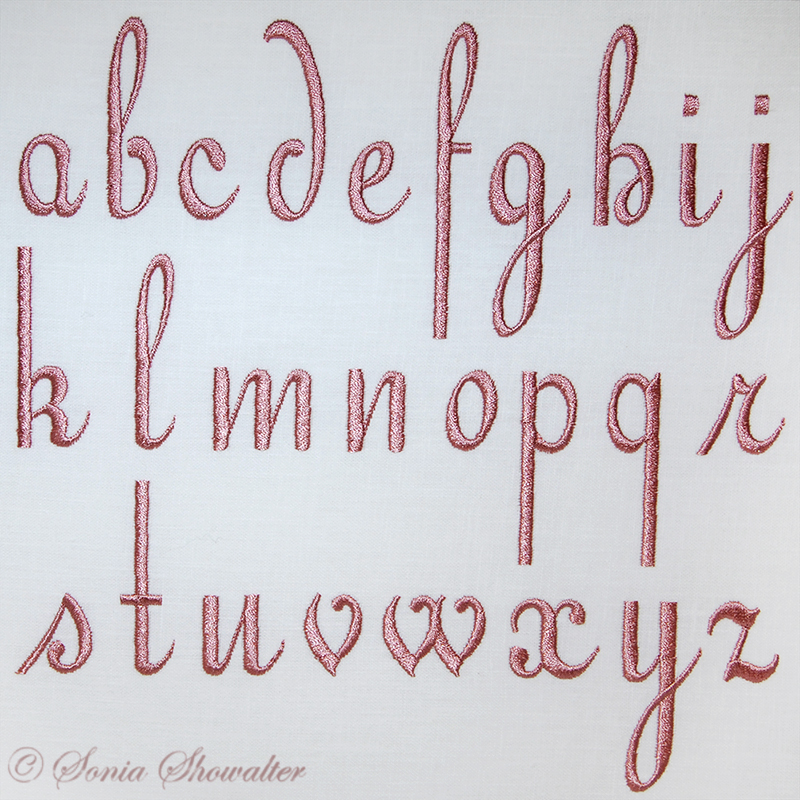 abcdefghij
klmnopqr
stuvwxyz
© Sonia Showalter